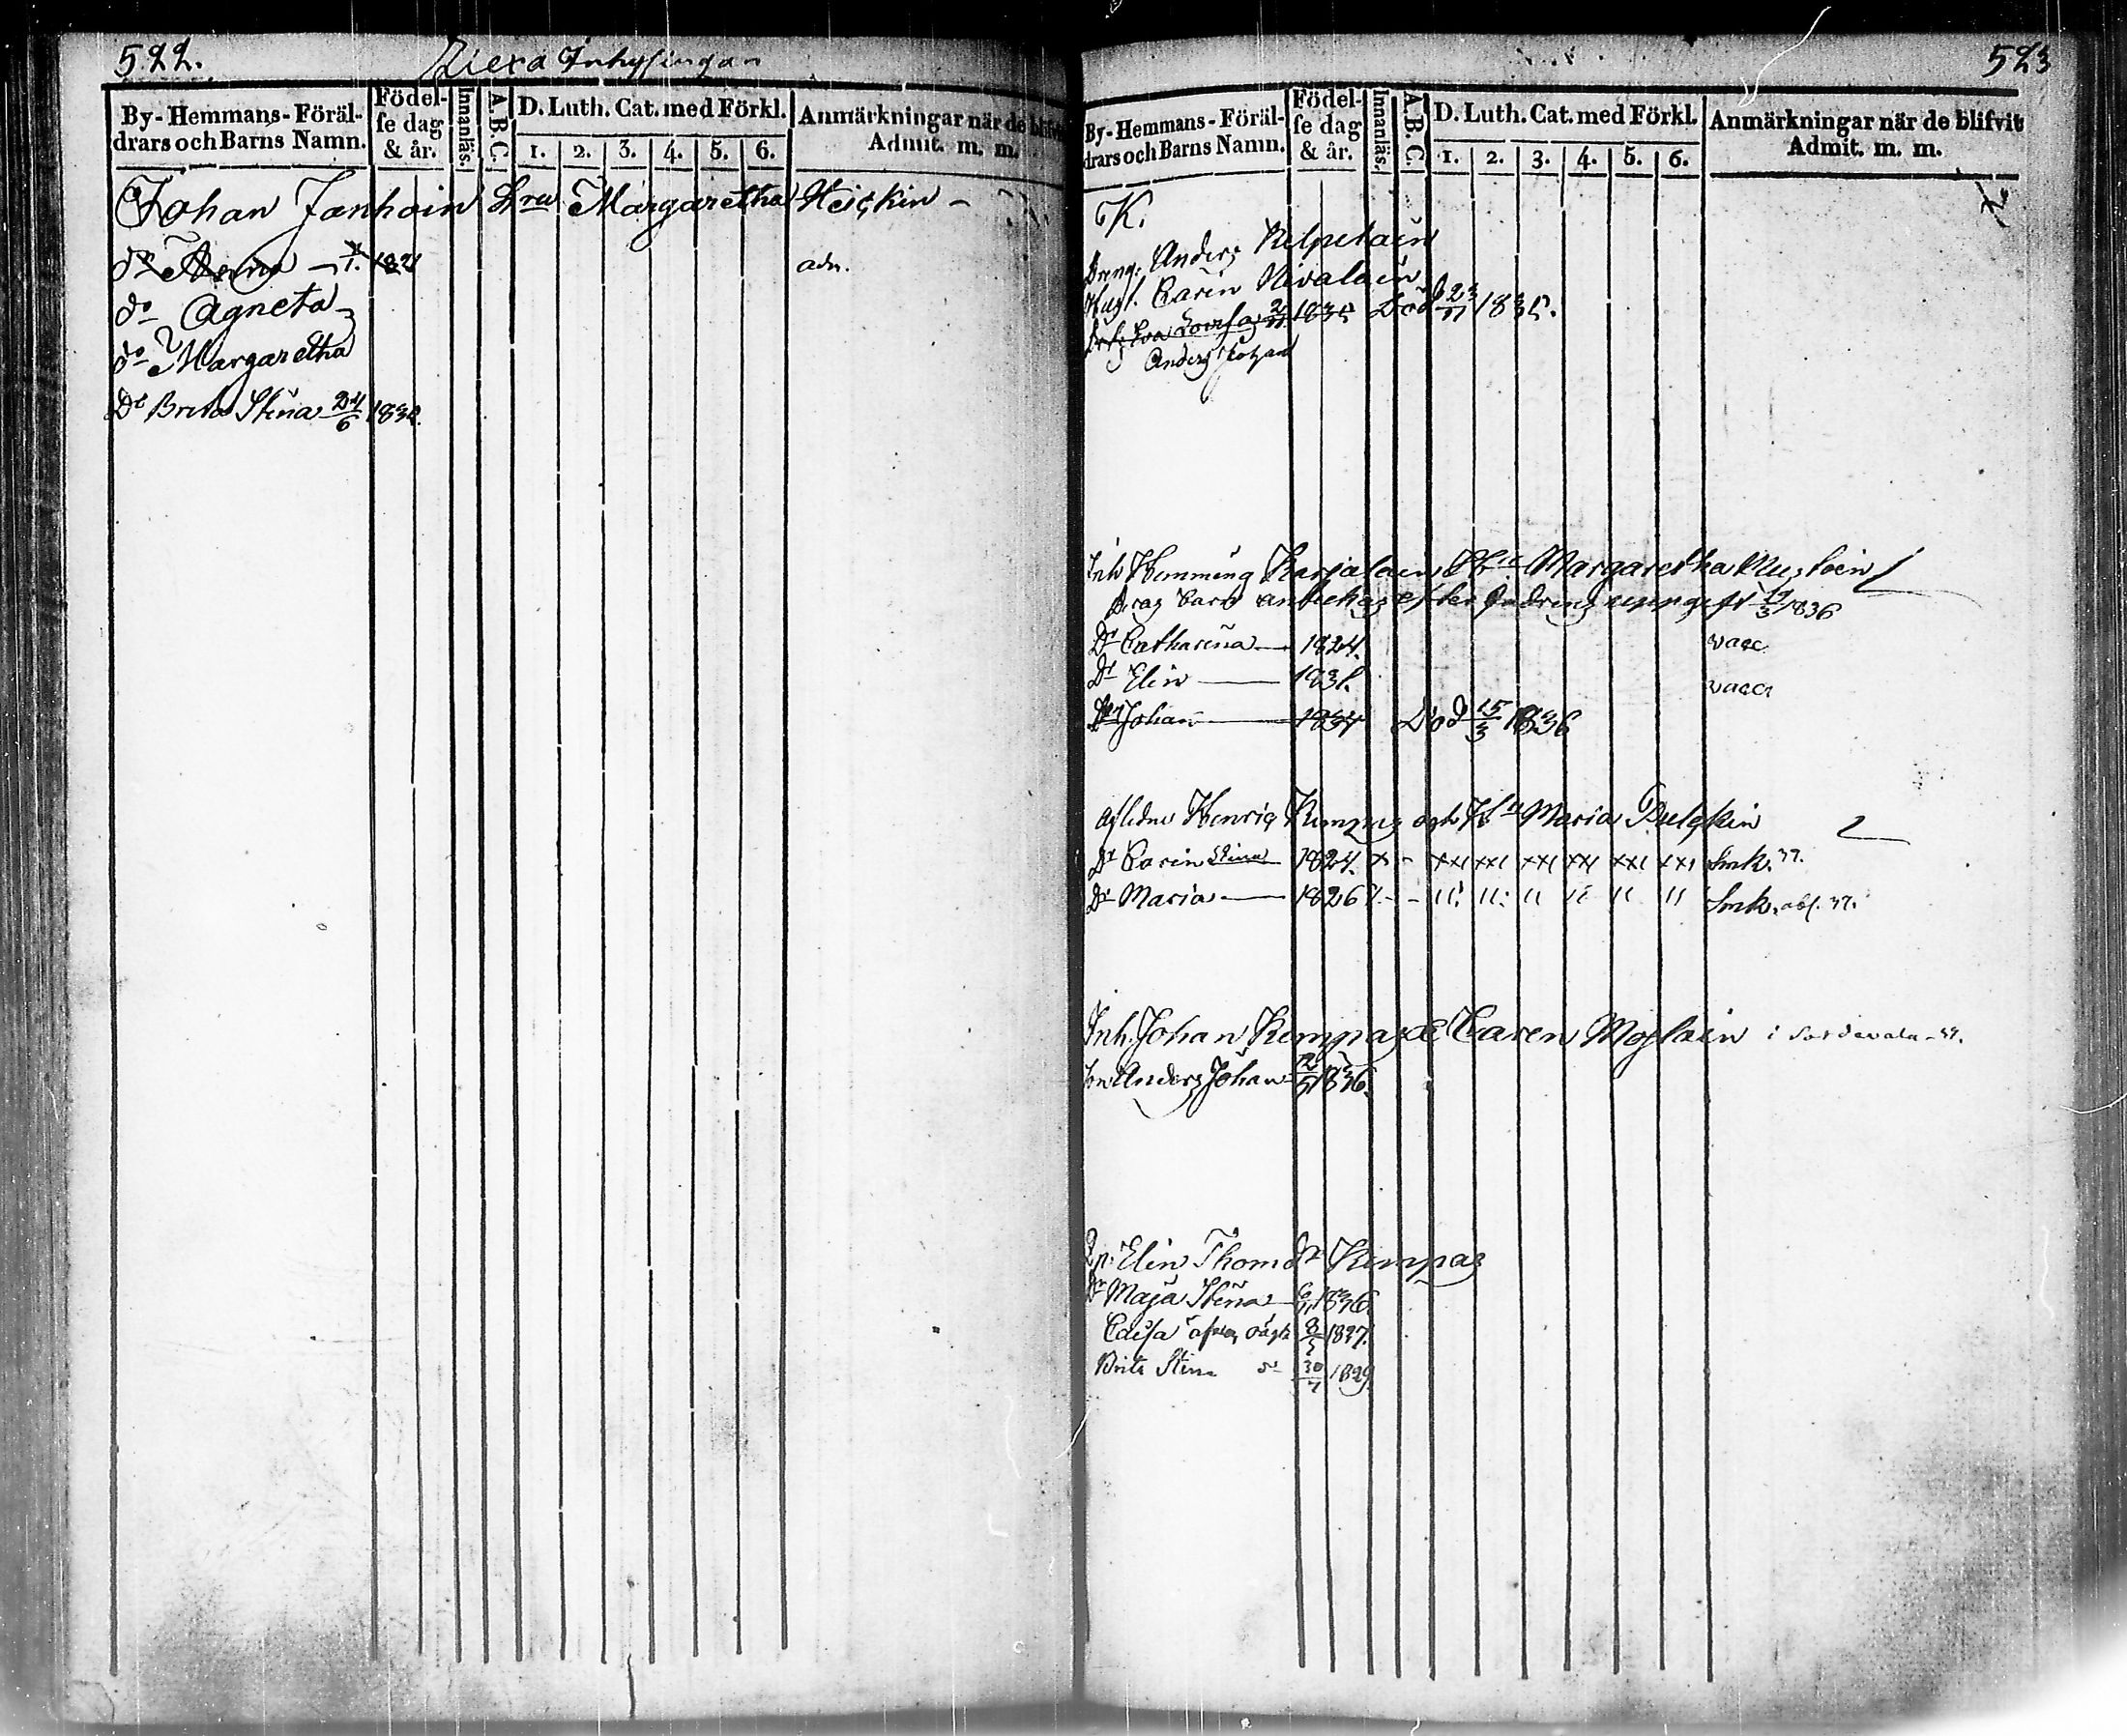 522.
Inhysingar
By-Hemmans-Föräl-
drars och Barns Namn.
Födel-
se dag
& år.
Innanläs.
A.B.C.
D. Luth. Cat. med Förkl.
1. 2. 3. 4. 5. 6.
Anmärkningar när de blifvit
Admit. m. m.
Johan Janhoin Hru Margaretha Heiskin -
dr Anna - 1821
adm.
do Agneta
do Margaretha
Dr Brita Stina 24/6 1832.
523
By-Hemmans-Föräl-
drars och Barns Namn.
Födel-
se dag
& år.
Innanläs.
A.B.C.
D. Luth. Cat. med Förkl.
1. 2. 3. 4. 5. 6.
Anmärkningar när de blifvit
Admit. m. m.
K.
Dreng. Anders Kelpelain
Hust. Carin Nivalain
Lovisa 1835 Död 23/11 1835.
Anders Johan
Inh Hemming Karjalain Margaretha
barn efter 1836
Dr Catharina 1824. vacc.
Dr Elin 1831. vacc.
Johan 1834 Död 15/3 1836
Aflidne Henric Kempas och Maria Pulkin
Dr Carin Stina 1824. x - xxı xxı xxı xxı xxı xxı Smk. 37.
Dr Maria 1826 - - ıı ıı ıı ıı ıı ıı Smk. abs. 37.
Inh. Johan Kempas & Caren Moilain i Sordavala
Son Anders Johan 1836.
Elin Thomdr Kempas
Dr Maja Stina 6/11 1836.
Caisa 8/5 1827.
Brita Stina do 30/7 1829